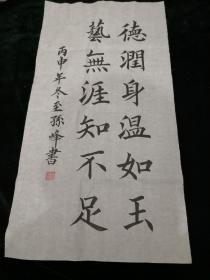 德潤身温如玉
藝無涯知不足
丙申年冬至孫峰書